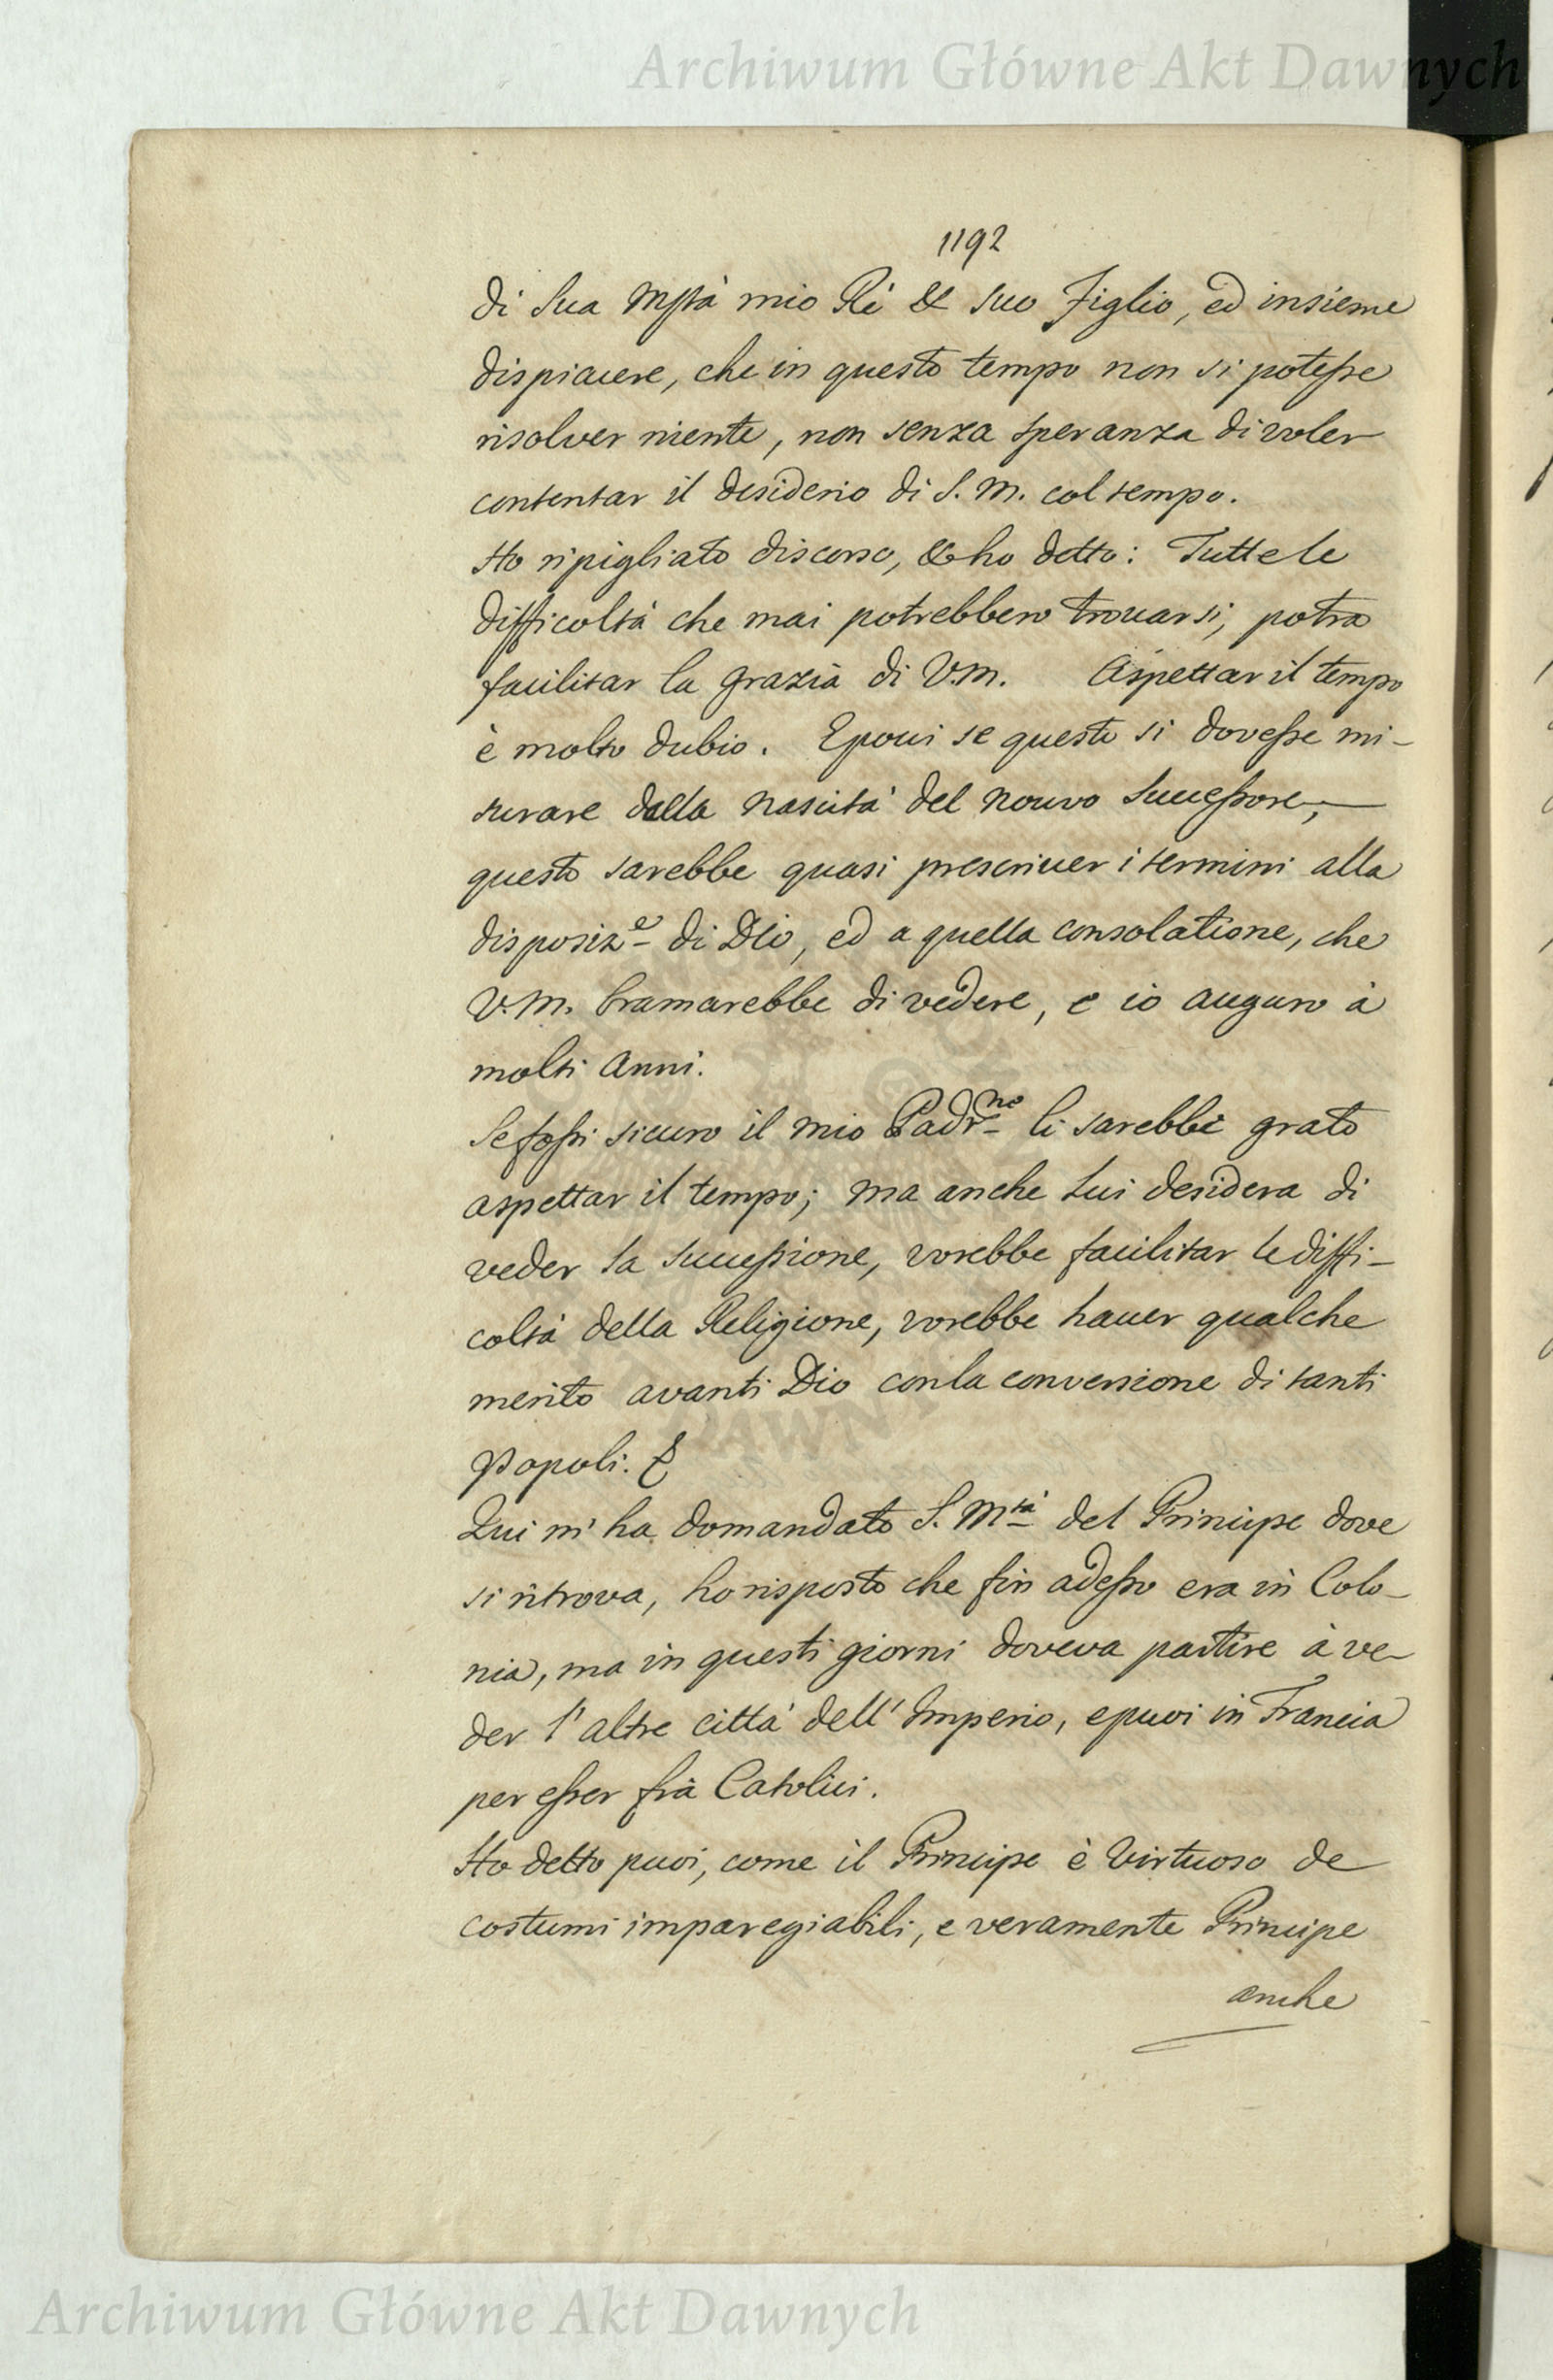 Archiwum Główne Akt Dawnych
1192
di Sua Mstà mio Rè & suo Figlio, ed insieme
dispiacere, che in questo tempo non si potesse
risolver niente, non senza speranza di voler
contentar il desiderio di S. M. col tempo.
Ho ripigliato discorso, & ho detto: Tutte le
difficoltà che mai potrebbero trouarsi, potra
facilitar la grazia di V.M. Aspettar il tempo
è molto dubio. E poui se questo si dovesse mi-
surare dalla nascità del nouvo Successore,
questo sarebbe quasi prescriuer i termini alla
disposizᵉ di Dio, ed a quella consolatione, che
V.M. bramarebbe di vedere, e io auguro à
molti anni.
Se fossi sicuro il mio Padrⁿᵉ li sarebbe grato
aspettar il tempo; ma anche lui desidera di
veder la successione, vorebbe facilitar le diffi-
coltà della Religione, vorebbe hauer qualche
merito avanti Dio con la conversione di tanti
Popoli.
Qui m'ha domandato S. Mᵗà del Principe dove
si ritrova, ho risposto che fin adesso era in Colo-
nia, ma in questi giorni doveva partire à ve-
der l'altre città dell'Imperio, e puoi in Francia
per esser frà Catolici.
Ho detto puoi, come il Principe è virtuoso de
costumi imparegiabili, e veramente Principe
anche
Archiwum Główne Akt Dawnych